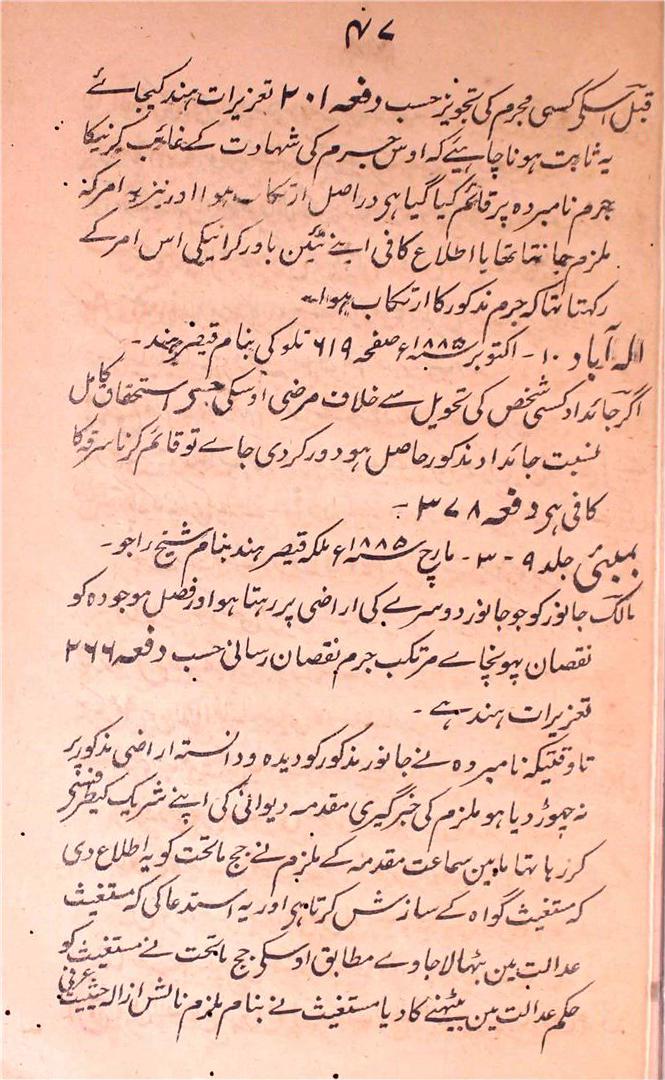 ۴۷
قبل اسکی کسی مجرم کی تجویز حسب دفعہ ۲۰۱ تعزیرات ہند کیجائے
یہ ثابت ہونا چاہیئے کہ اوس جرم کی شہادت کے غائب کرنیکا
جرم نامبردہ پر قائم کیا گیا ہی دراصل ارتکاب ہوا اور نیز یہ امر کہ
ملزم جانتا تھا یا اطلاع کافی اپنے تئین باور کرانیکی اس امر کے
رکہتا تہا کہ جرم مذکور کا ارتکاب ہوا۔
الہ آباد ۱۰۔ اکتوبر سنہ ۱۸۸۵ء صفحہ ۶۱۹ تلوکی بنام قیصر ہند۔
اگر جائداد کسی شخص کی تحویل سے خلاف مرضی اوسکی جسے استحقاق کامل
نسبت جائداد مذکور حاصل ہو دور کردی جاے تو قائم کرنا سرقہ کا
کافی ہی دفعہ ۳۷۸۔
بمبئی جلد ۹۔ ۳۔ مارچ سنہ ۱۸۸۵ء ملکہ قیصر ہند بنام شیخ راجو۔
مالک جانور کو جو جانور دوسرے کی اراضی پر رہتا ہو اور فصل موجودہ کو
نقصان پہونچاے مرتکب جرم نقصان رسانی حسب دفعہ ۲۶۶
تعزیرات ہند ہے۔
تاوقتیکہ نامبردہ نے جانور مذکور کو دیدہ و دانستہ اراضی مذکور پر
نہ چھوڑ دیا ہو ملزم کی خبرگیری مقدمہ دیوانی کی اپنے شریک کیطرفسے
کر رہا تہا مابین سماعت مقدمہ کے ملزم نے جج ماتحت کو یہ اطلاع دی
کہ مستغیث گواہ کے سازش کرتا ہی اور یہ استدعا کی کہ مستغیث
عدالت مین بٹہالا جاوے مطابق اوسکی جج ماتحت نے مستغیث کو
حکم عدالت مین بیٹہنے کا دیا مستغیث نے بنام ملزم نالش ازالہ حیثیت عرفی